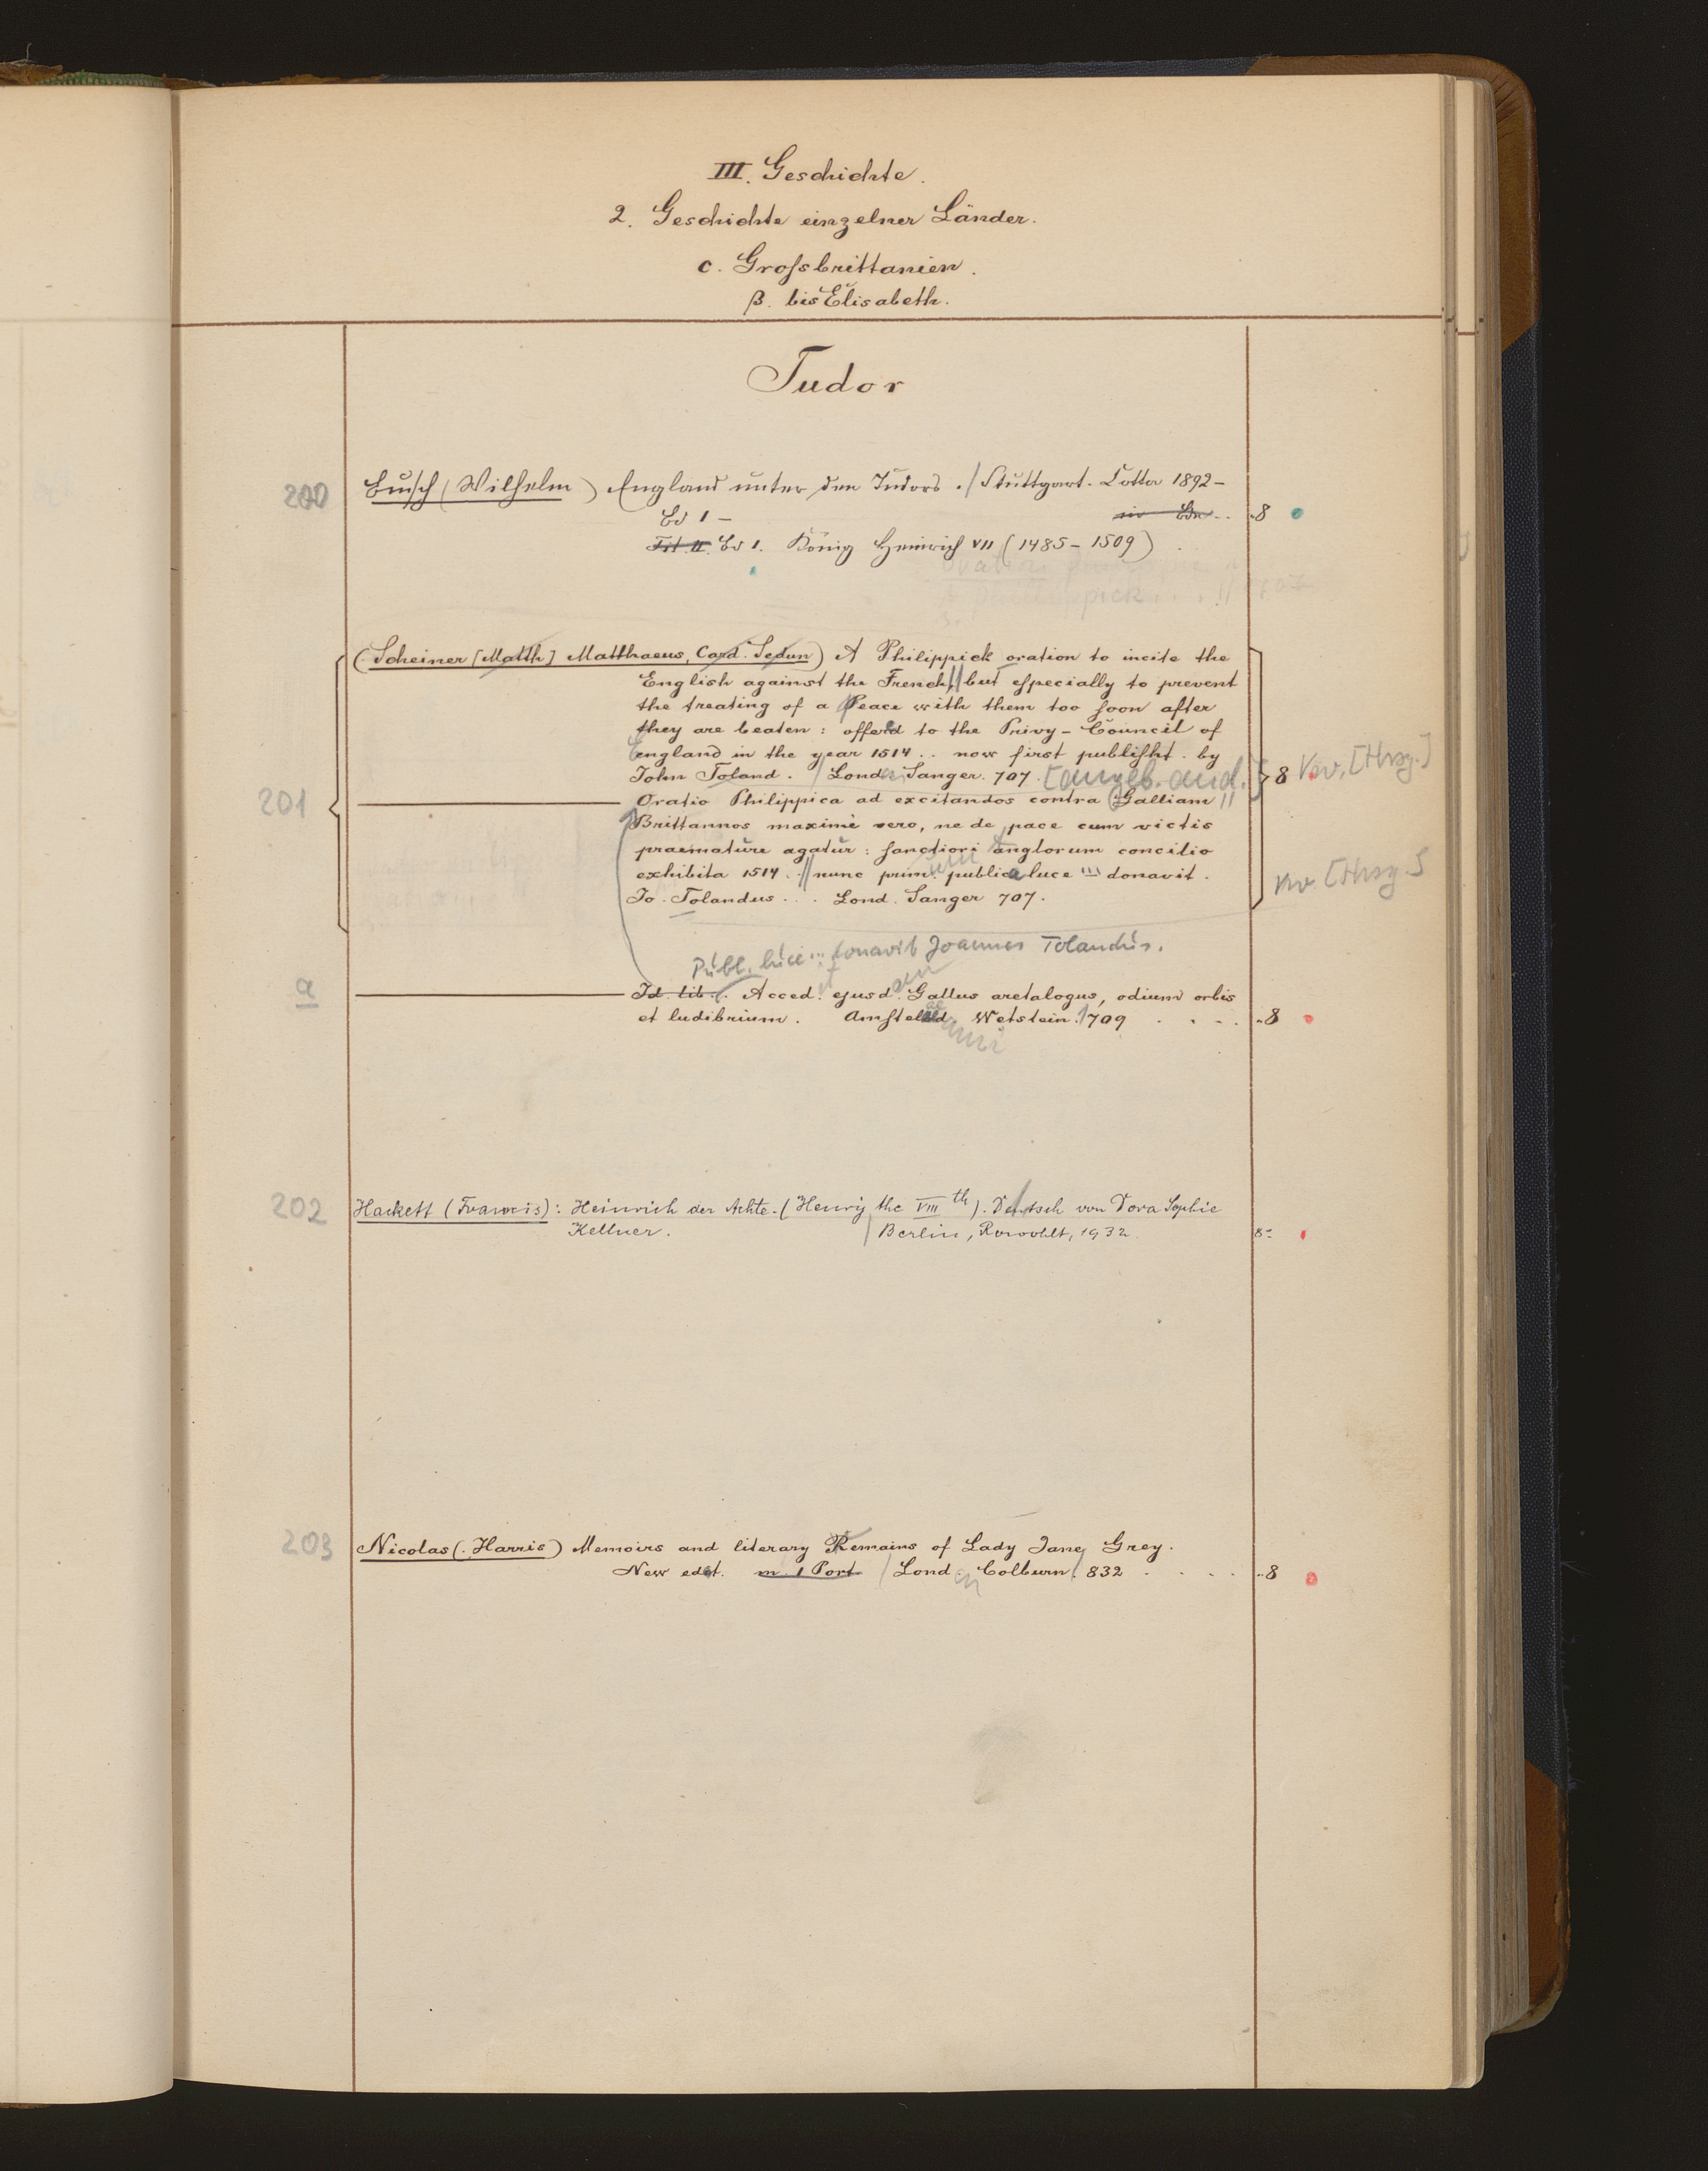 III. Geschichte.
2. Geschichte einzelner Länder.
c. Grossbrittanien.
β. bis Elisabeth.
Tudor
200 Busch (Wilhelm) England unter den Tudors. / Stuttgart. Cotta 1892-
Bd 1 - in Bdn. . 8
Tit. II. Bd 1. König Heinrich VII (1485-1509)
(Scheiner [Matth] Matthaeus, Card. Sedun) A Philippick oration to incite the
English against the French, || but especially to prevent
the treating of a Peace with them too soon after
they are beaten : offerd to the Privy-Council of
England in the year 1514 . . now first publisht. by
John Toland. / Lond. Sanger. 707. [angeb. and.] 8 Kv. [Hrsg.]
201 Oratio Philippica ad excitandos contra Galliam ||
Brittannos maximè vero, ne de pace cum victis
praemature agatur : sanctiori anglorum concilio
exhibita 1514. || nunc prim. publica luce ... donavit. Kv. [Hrsg.]
Jo. Tolandus . . . Lond. Sanger 707.
Publ. luce ... donavit Joannes Tolandus.
a Id. lib. Acced. ejusd. Gallus aretalogus, odium orbis
et ludibrium. Amstelaed Wetstein. 1709 . . . . 8
202 Hackett (Francis): Heinrich der Achte. (Henry the VIIIth). Deutsch von Dora Sophie
Kellner. / Berlin, Rowohlt, 1932. 8°
203 Nicolas (. Harris) Memoirs and literary Remains of Lady Jane Grey.
New edit. m. 1 Port / Lond. Colburn. 832 . . . . 8